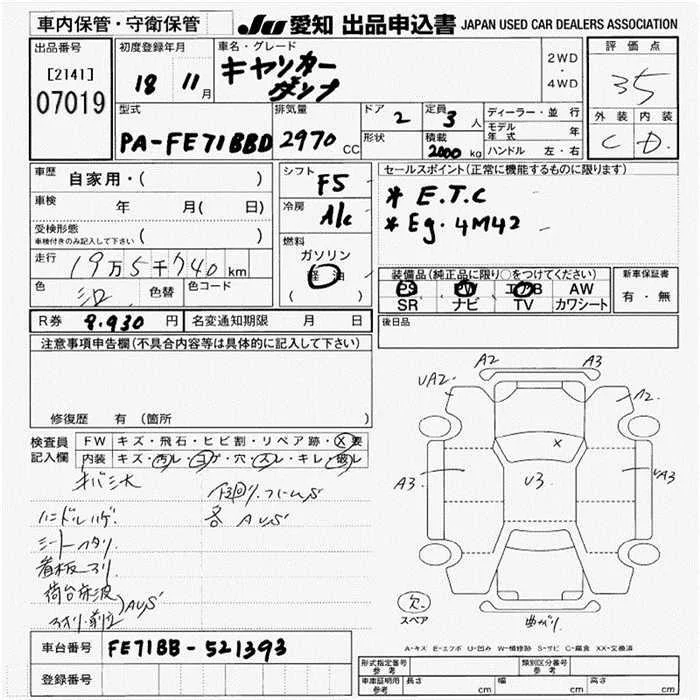 車内保管・守衛保管
JU 愛知 出品申込書 JAPAN USED CAR DEALERS ASSOCIATION
出品番号
[2141]
07019
初度登録年月
18 11月
車名・グレード
キャンター
ダンプ
2WD
・
4WD
評価点
35
外装 内装
C D
型式
PA-FE71BBD
排気量
2970 CC
ドア 2
形状
定員 3人
積載 2000 kg
ディーラー・並行
モデル年式 年
ハンドル 左・右
車歴 自家用・( )
車検 年 月( 日)
受検形態
車検付きのみ記入して下さい ( )
走行 19万5千740km
色 シロ 色替 色コード
シフト F5
冷房 A/C
燃料
ガソリン
軽油
( )
セールスポイント(正常に機能するものに限ります)
* E.T.C
* Eg. 4M42
装備品(純正品に限り○をつけてください)
PS PW エアB AW
SR ナビ TV カワシート
新車保証書
有・無
R券 8.930円 名変通知期限 月 日
後日品
注意事項申告欄(不具合内容等は具体的に記入して下さい)
修復歴 有(箇所 )
検査員記入欄
FW キズ・飛石・ヒビ割・リペア跡・X要
内装 キズ・汚レ・コゲ・穴・スレ・キレ・破レ
ハンドルハゲ
シートヘタリ
看板
荷台床波
アオリ・前立 AUS
各 AUS
A2 A3
UA2 A2
A3 U3 UA3
X
欠
スペア
曲がり
A-キズ E-エクボ U-凹み W-補修跡 S-サビ C-腐食 XX-交換済
車台番号 FE71BB-521393
登録番号
形式指定番号 参考
類別区分番号 参考
車庫証明用 参考 長さ cm 幅 cm 高さ cm